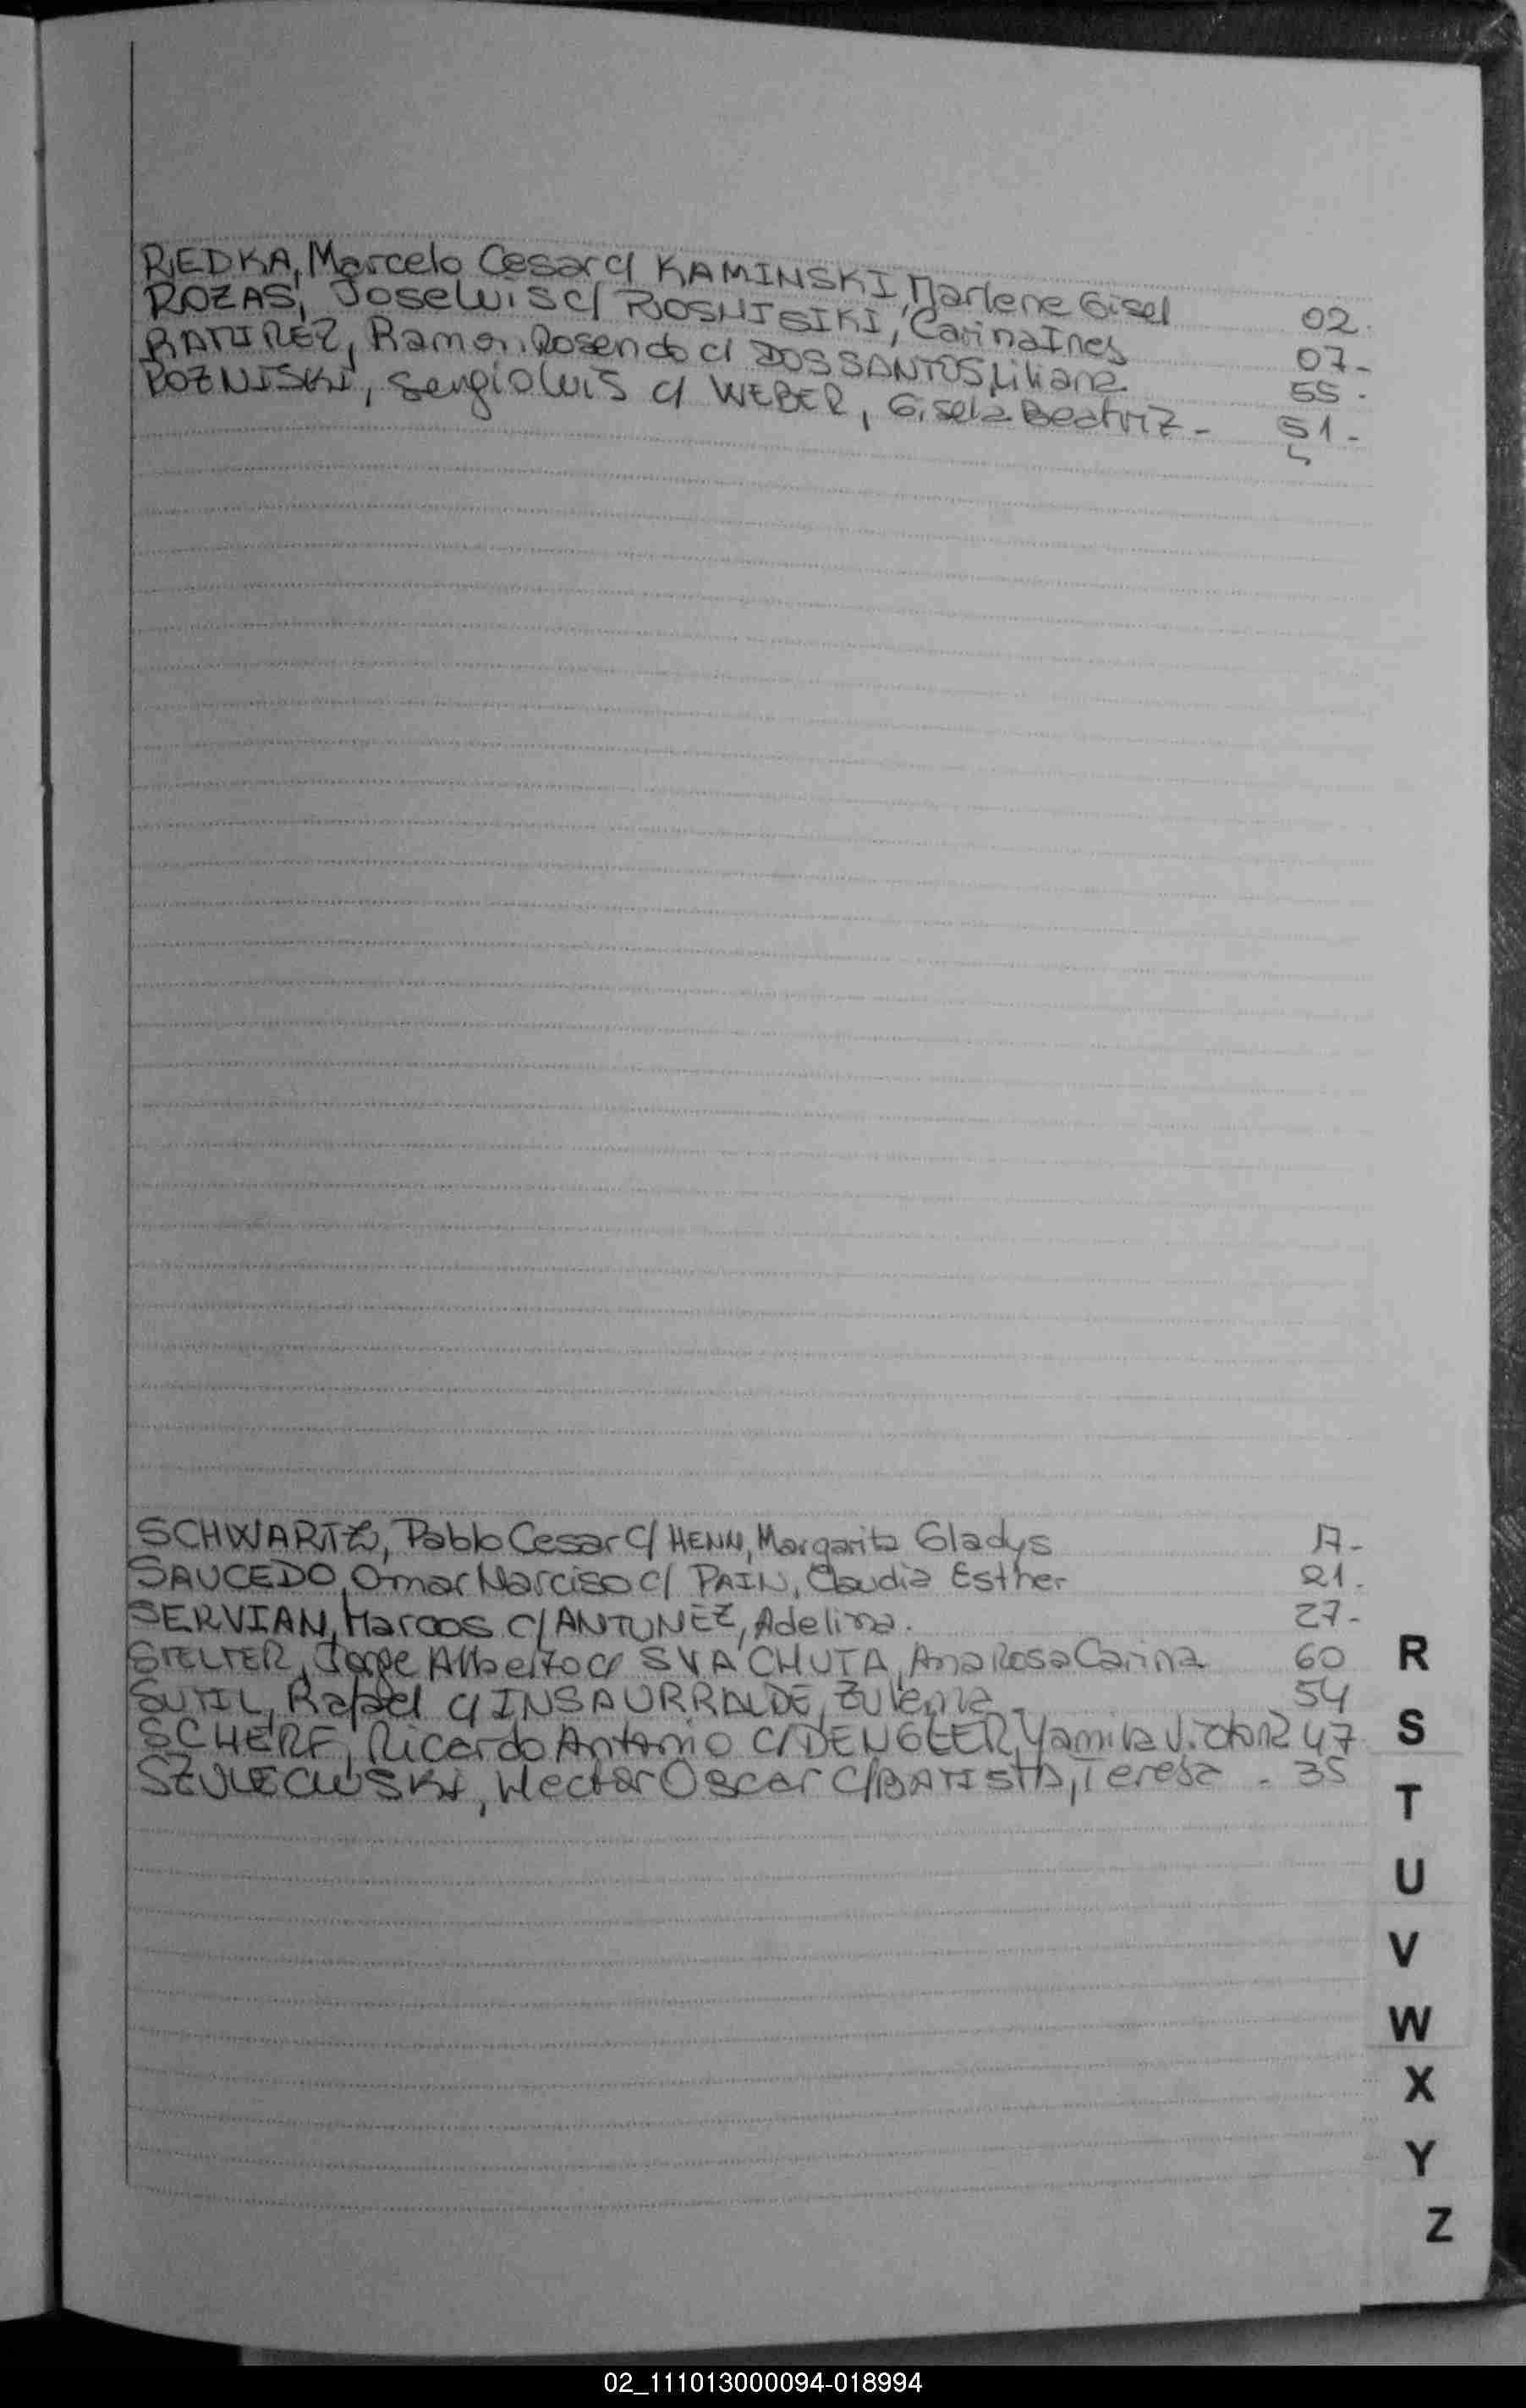 REDKA, Marcelo Cesar c/ KAMINSKI, Marlene Gisel 02.
ROZAS, Jose Luis c/ ROSNISIKI, Carina Ines 07-
RAMIREZ, Ramon Rosendo c/ DOS SANTOS, Liliana 55.
ROZNISKI, Sergio Luis c/ WEBER, Gisela Beatriz - 51-
SCHWARTZ, Pablo Cesar c/ HENN, Margarita Gladys 17-
SAUCEDO, Omar Narciso c/ PAIN, Claudia Esther 21.
SERVIAN, Marcos c/ ANTUNEZ, Adelina. 27-
STELTER, Jorge Alberto c/ SVACHUTA, Ana Rosa Carina 60
SUTIL, Rafael c/ INSAURRALDE, Zulema - 54
SCHERF, Ricardo Antonio c/ DENGLER, Yamila 47
Hector Oscar c/ BATISTA, Teresa - 35
R
S
T
U
V
W
X
Y
Z
02_111013000094-018994